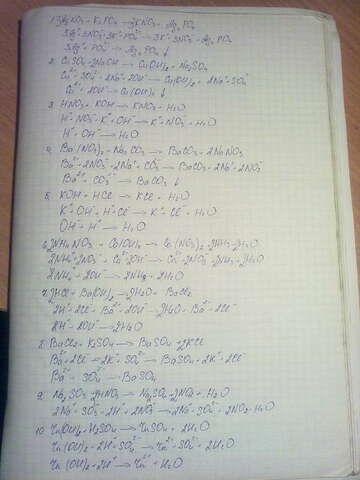 1. 3AgNO3 + K3PO4 → 3KNO3 + Ag3PO4
3Ag⁺ + 3NO3⁻ + 3K⁺ + PO4³⁻ → 3K⁺ + 3NO3⁻ + Ag3PO4
3Ag⁺ + PO4³⁻ → Ag3PO4↓
2. CuSO4 + 2NaOH → Cu(OH)2 + Na2SO4
Cu²⁺ + SO4²⁻ + 2Na⁺ + 2OH⁻ → Cu(OH)2 + 2Na⁺ + SO4²⁻
Cu²⁺ + 2OH⁻ → Cu(OH)2↓
3. HNO3 + KOH → KNO3 + H2O
H⁺ + NO3⁻ + K⁺ + OH⁻ → K⁺ + NO3⁻ + H2O
H⁺ + OH⁻ → H2O
4. Ba(NO3)2 + Na2CO3 → BaCO3 + 2NaNO3
Ba²⁺ + 2NO3⁻ + 2Na⁺ + CO3²⁻ → BaCO3 + 2Na⁺ + 2NO3⁻
Ba²⁺ + CO3²⁻ → BaCO3↓
5. KOH + HCl → KCl + H2O
K⁺ + OH⁻ + H⁺ + Cl⁻ → K⁺ + Cl⁻ + H2O
OH⁻ + H⁺ → H2O
6. 2NH4NO3 + Ca(OH)2 → Ca(NO3)2 + 2NH3 + 2H2O
2NH4⁺ + 2NO3⁻ + Ca²⁺ + 2OH⁻ → Ca²⁺ + 2NO3⁻ + 2NH3 + 2H2O
2NH4⁺ + 2OH⁻ → 2NH3 + 2H2O
7. 2HCl + Ba(OH)2 → 2H2O + BaCl2
2H⁺ + 2Cl⁻ + Ba²⁺ + 2OH⁻ → 2H2O + Ba²⁺ + 2Cl⁻
2H⁺ + 2OH⁻ → 2H2O
8. BaCl2 + K2SO4 → BaSO4 + 2KCl
Ba²⁺ + 2Cl⁻ + 2K⁺ + SO4²⁻ → BaSO4 + 2K⁺ + 2Cl⁻
Ba²⁺ + SO4²⁻ → BaSO4
9. Na2SO3 + 2HNO3 → Na2SO4 + 2NO2 + H2O
2Na⁺ + SO3²⁻ + 2H⁺ + 2NO3⁻ → 2Na⁺ + SO4²⁻ + 2NO2 + H2O
10. Zn(OH)2 + H2SO4 → ZnSO4 + 2H2O
Zn(OH)2 + 2H⁺ + SO4²⁻ → Zn²⁺ + SO4²⁻ + 2H2O
Zn(OH)2 + 2H⁺ → Zn²⁺ + H2O